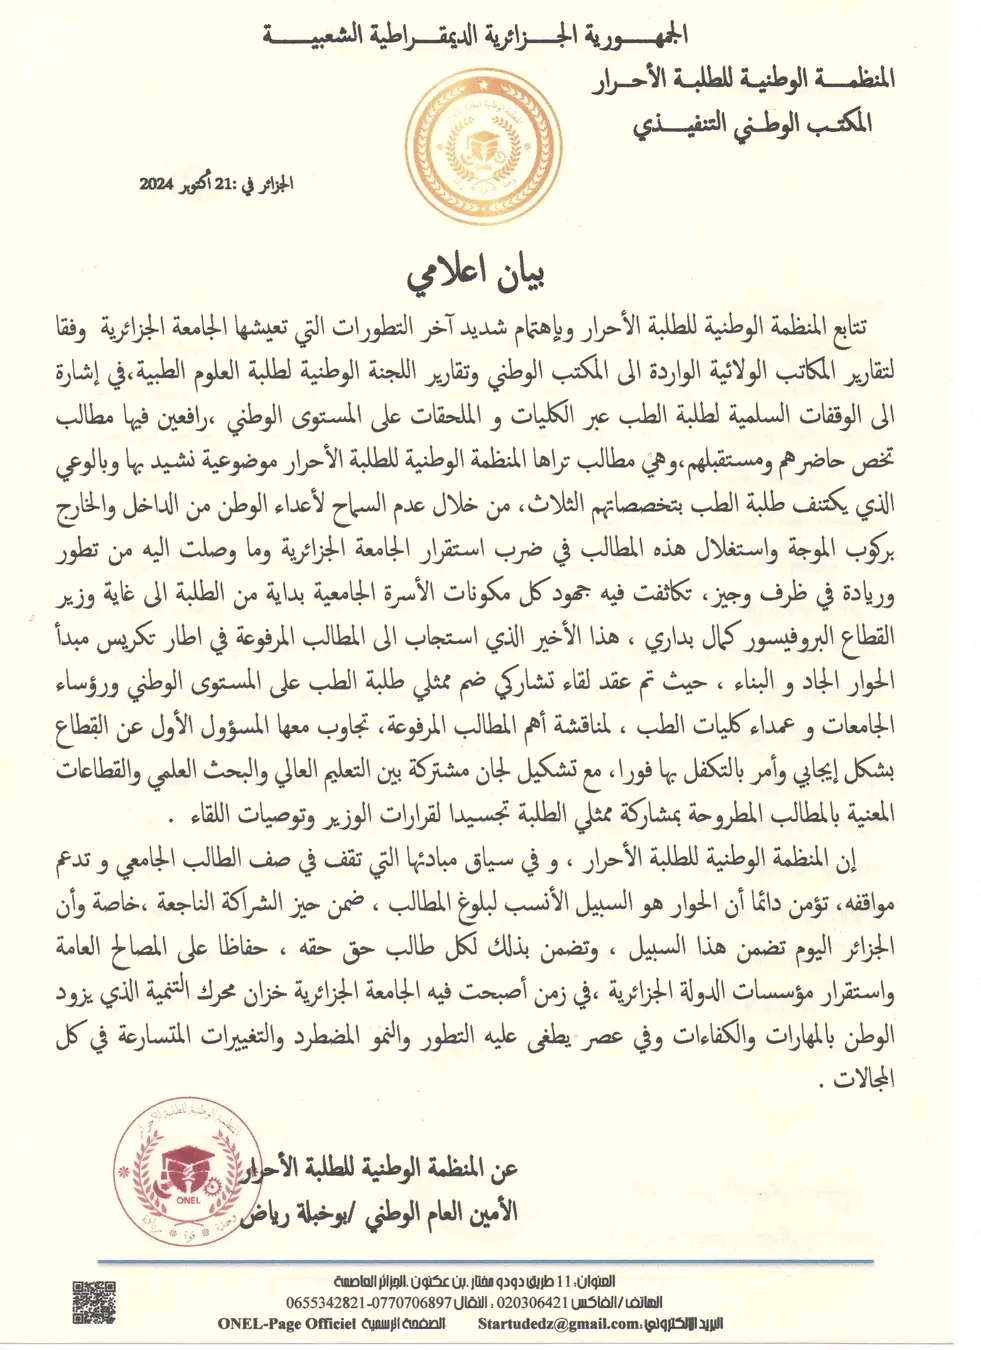 الجمهورية الجزائرية الديمقراطية الشعبية
المنظمة الوطنية للطلبة الأحرار
المكتب الوطني التنفيذي
الجزائر في :21 أكتوبر 2024
بيان اعلامي
تتابع المنظمة الوطنية للطلبة الأحرار وبإهتمام شديد آخر التطورات التي تعيشها الجامعة الجزائرية وفقا
لتقارير المكاتب الولائية الواردة الى المكتب الوطني وتقارير اللجنة الوطنية لطلبة العلوم الطبية،في إشارة
الى الوقفات السلمية لطلبة الطب عبر الكليات و الملحقات على المستوى الوطني ،رافعين فيها مطالب
تخص حاضرهم ومستقبلهم،وهي مطالب تراها المنظمة الوطنية للطلبة الأحرار موضوعية نشيد بها وبالوعي
الذي يكتنف طلبة الطب بتخصصاتهم الثلاث، من خلال عدم السماح لأعداء الوطن من الداخل والخارج
بركوب الموجة واستغلال هذه المطالب في ضرب استقرار الجامعة الجزائرية وما وصلت اليه من تطور
وريادة في ظرف وجيز، تكاثفت فيه جهود كل مكونات الأسرة الجامعية بداية من الطلبة الى غاية وزير
القطاع البروفيسور كمال بداري ، هذا الأخير الذي استجاب الى المطالب المرفوعة في اطار تكريس مبدأ
الحوار الجاد و البناء ، حيث تم عقد لقاء تشاركي ضم ممثلي طلبة الطب على المستوى الوطني ورؤساء
الجامعات و عمداء كليات الطب ، لمناقشة أهم المطالب المرفوعة، تجاوب معها المسؤول الأول عن القطاع
بشكل إيجابي وأمر بالتكفل بها فورا، مع تشكيل لجان مشتركة بين التعليم العالي والبحث العلمي والقطاعات
المعنية بالمطالب المطروحة بمشاركة ممثلي الطلبة تجسيدا لقرارات الوزير وتوصيات اللقاء .
إن المنظمة الوطنية للطلبة الأحرار ، و في سياق مبادئها التي تقف في صف الطالب الجامعي و تدعم
مواقفه، تؤمن دائما أن الحوار هو السبيل الأنسب لبلوغ المطالب ، ضمن حيز الشراكة الناجعة ،خاصة وأن
الجزائر اليوم تضمن هذا السبيل ، وتضمن بذلك لكل طالب حق حقه ، حفاظا على المصالح العامة
واستقرار مؤسسات الدولة الجزائرية ،في زمن أصبحت فيه الجامعة الجزائرية خزان محرك التنمية الذي يزود
الوطن بالمهارات والكفاءات وفي عصر يطغى عليه التطور والنمو المضطرد والتغييرات المتسارعة في كل
المجالات .
المنظمة الوطنية للطلبة الأحرار
ONEL
عن المنظمة الوطنية للطلبة الأحرار
الأمين العام الوطني /بوخبلة رياض
العنوان: 11 طريق دودو مختار .بن عكنون .الجزائر العاصمة
الهاتف/الفاكس 020306421 : النقال 0770706897-0655342821
البريد الالكتروني:Startudedz@gmail.com الصفحة الرسمية ONEL-Page Officiel